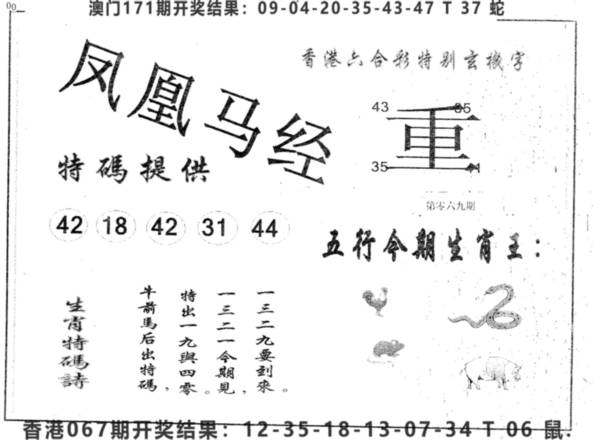 澳门171期开奖结果：09-04-20-35-43-47 T 37 蛇
香港六合彩特别玄機字
凤凰马经
特碼提供
42 18 42 31 44
43 35
重
35
第零六九期
五行今期生肖王：
一三二九要到來。
一三二一今期見，
特出一九與四零。
牛前馬后出特碼，
生肖特碼詩
香港067期开奖结果：12-35-18-13-07-34 T 06 鼠